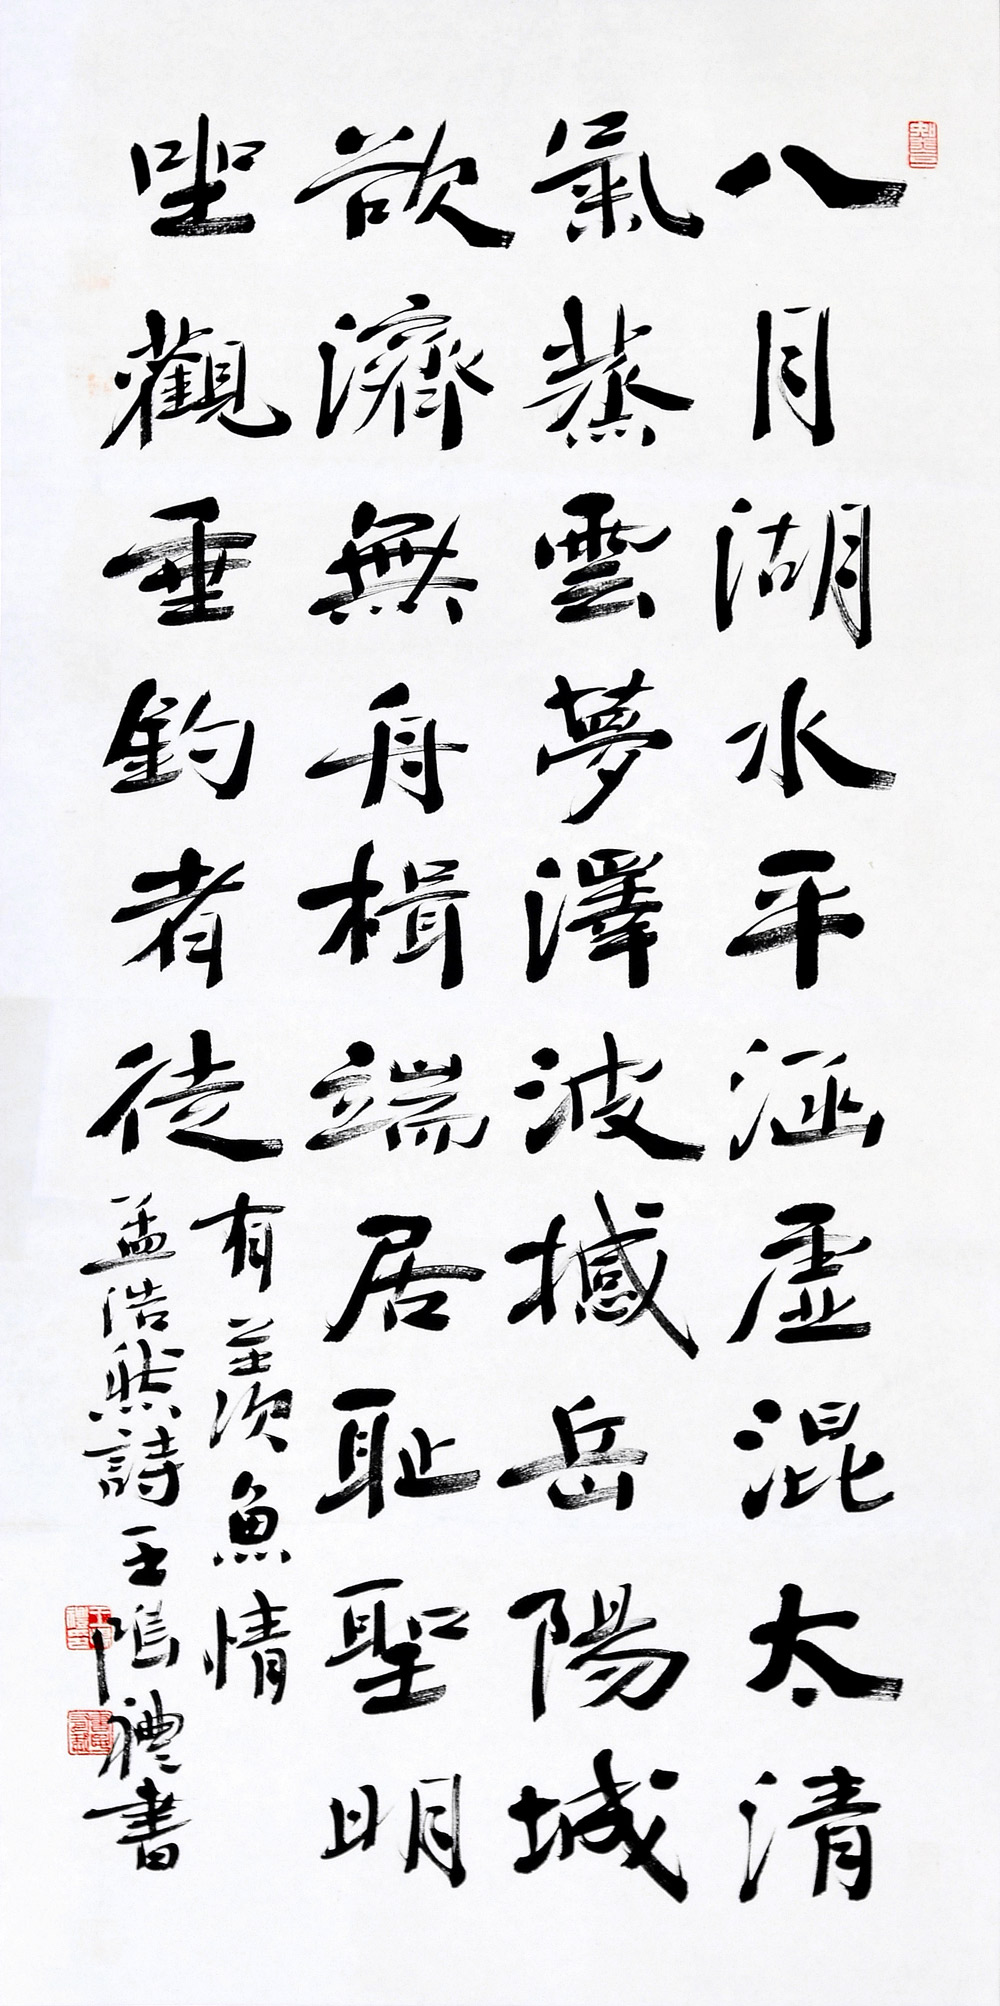 八月湖水平涵虛混太清
氣蒸雲夢澤波撼岳陽城
欲濟無舟楫端居恥聖明
坐觀垂釣者徒有羨魚情
孟浩然詩王鳴禮書